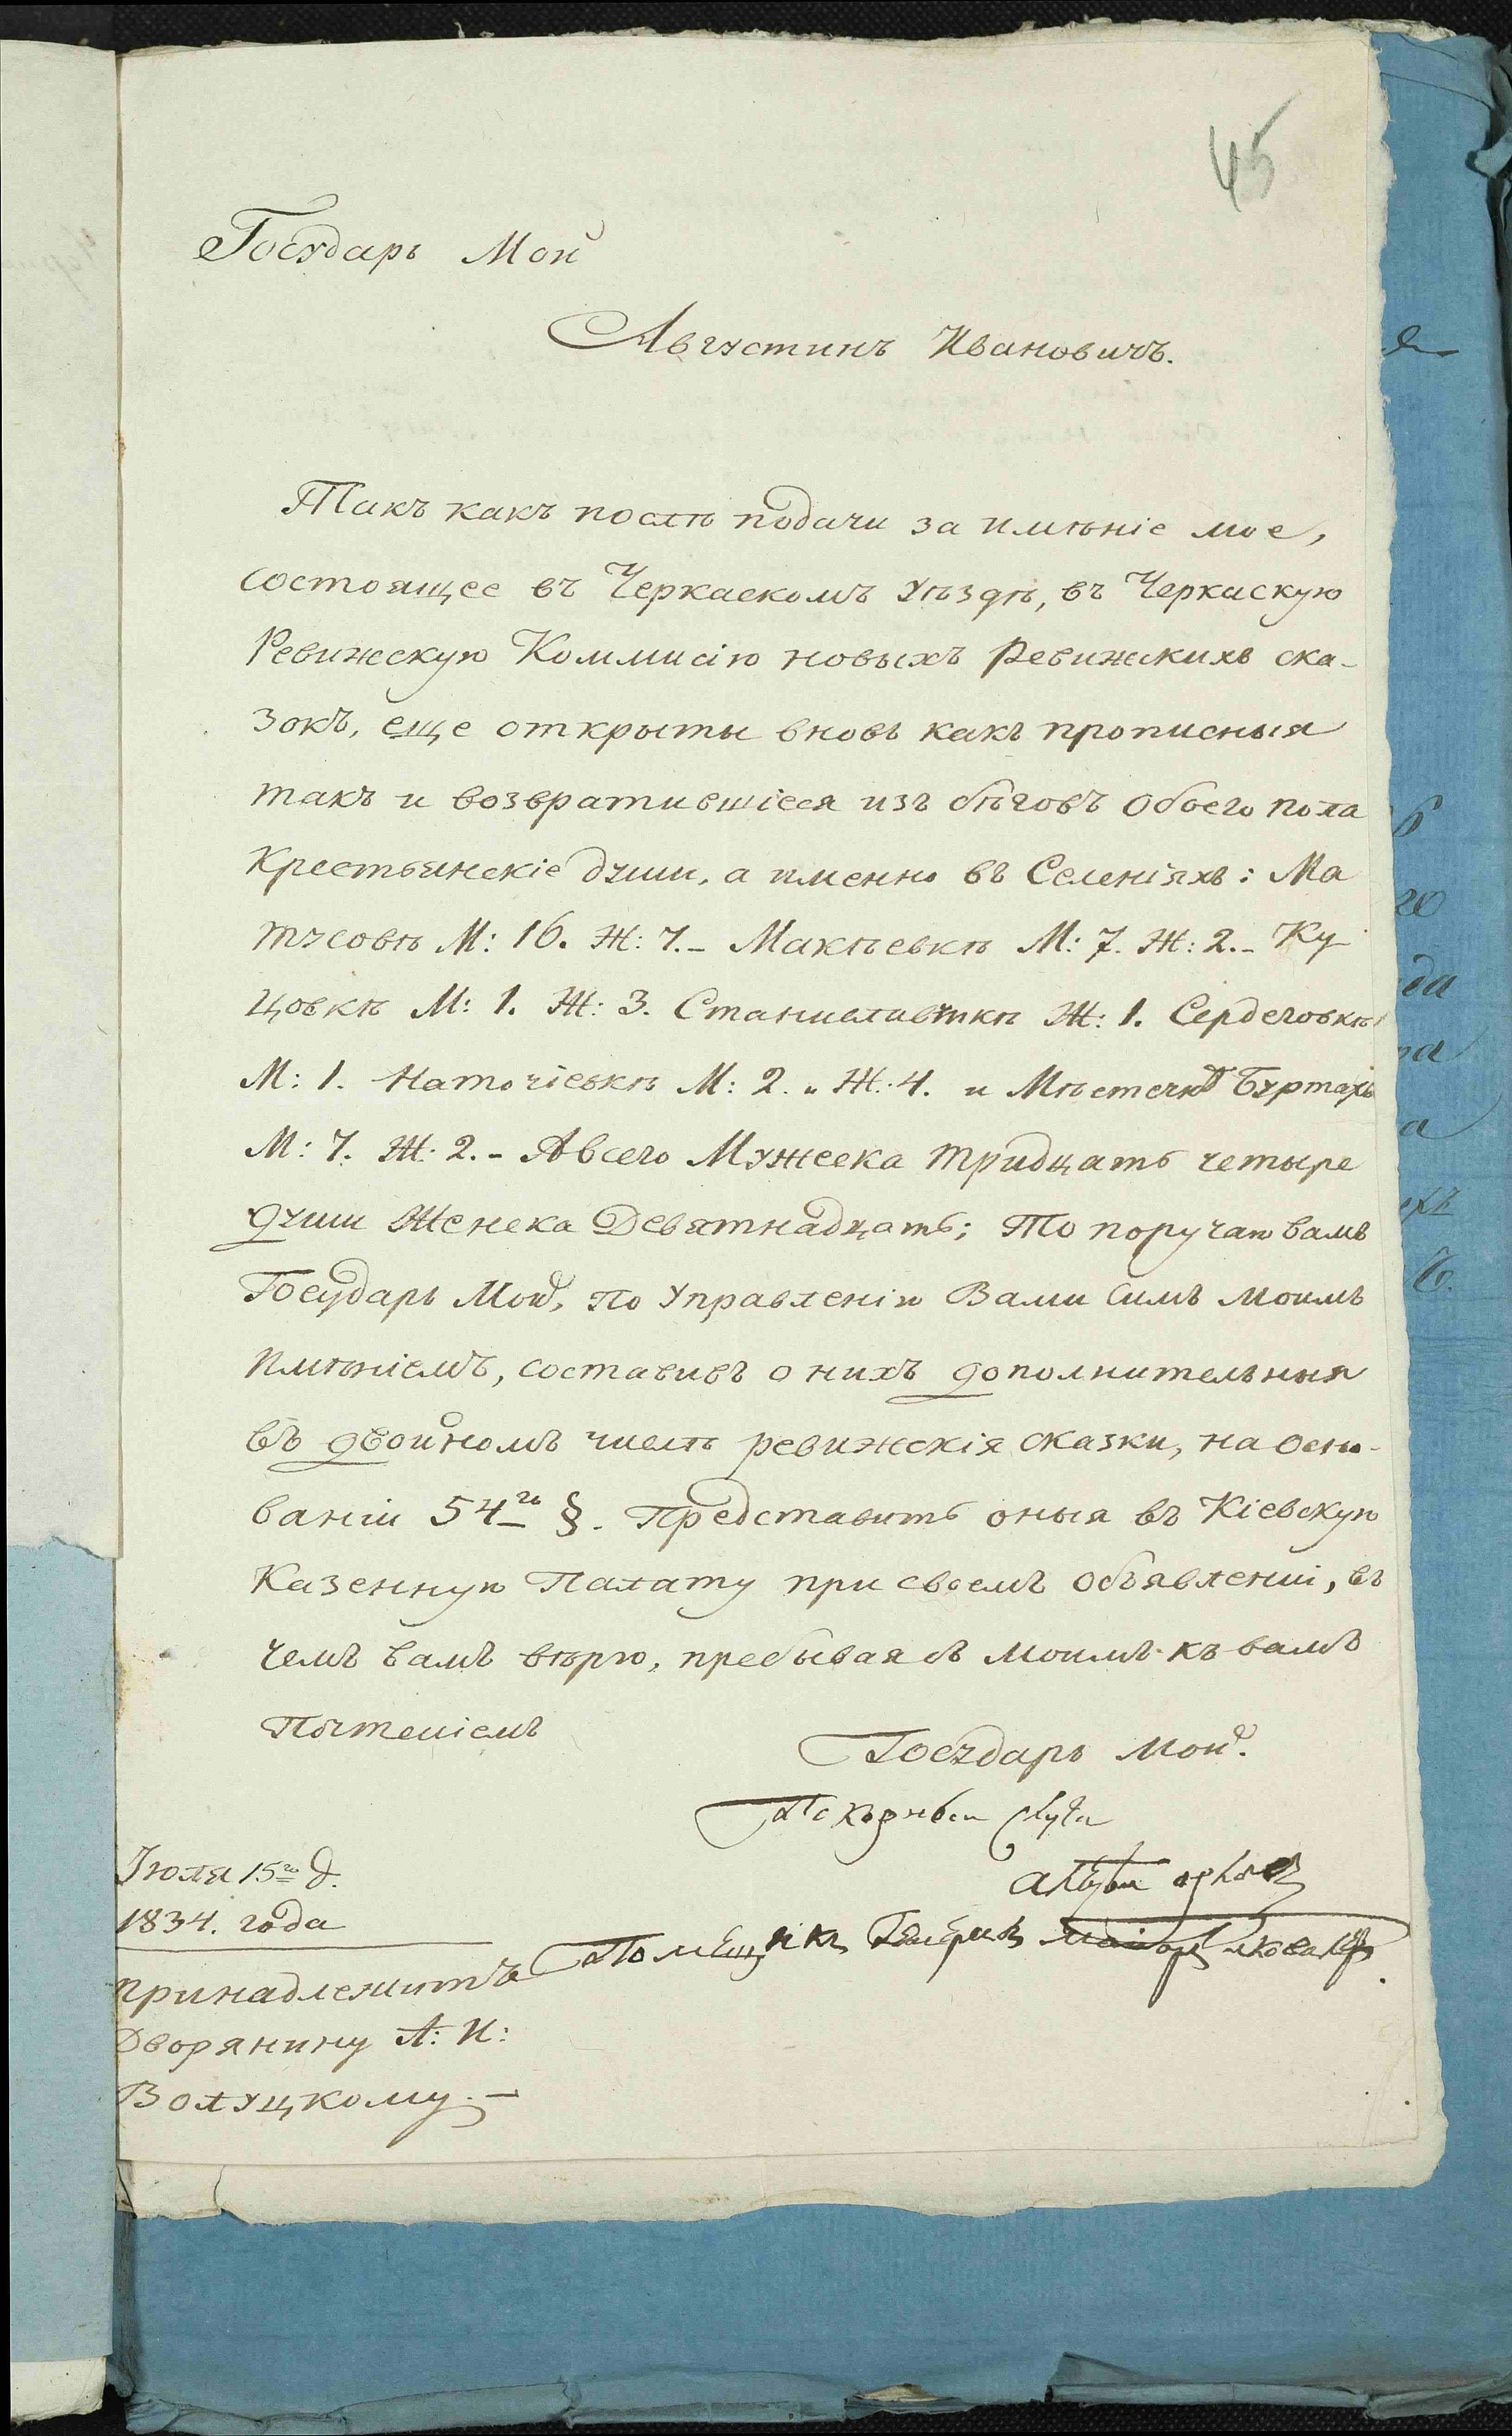 45
Государь Мой
Августинъ Ивановичъ.
Такъ какъ послѣ подачи за имѣніе мое,
состоящее въ Черкаскомъ Уѣздѣ, въ Черкаскую
Ревижскую Коммисію новыхъ Ревижскихъ ска-
зокъ, еще открыты вновь какъ прописныя
такъ и возвратившіеся изъ бѣговъ Обоего пола
Крестьянскіе души, а именно въ Селеніяхъ: Ма
тусовѣ М: 16. Ж: 7. - Макѣевкѣ М: 7. Ж: 2. - Ку
цовкѣ М: 1. Ж: 3. Ж: 1. Сердеговкѣ
М: 1. М: 2. „ Ж: 4. и Мѣстечкѣ Буртахъ
М: 7. Ж: 2. - А всего Мужеска тридцать четыре
души Женска Девятнадцать; То поручаю вамъ
Государь Мой, по Управленію Вами Симъ моимъ
имѣніемъ, составивъ о нихъ дополнительныя
въ двойномъ числѣ ревижскія сказки, на осно-
ваніи 54го §. Представить оныя въ Кіевскую
Казенную Палату при своемъ Объявленіи, въ
чемъ вамъ вѣрю, пребывая съ моимъ къ вамъ
Почтеніемъ
Государь Мой.
Покорный слуга
Іюля 15го д.
1834. года
Помещикъ
принадлежитъ
Дворянину А: И:
Волуцкому. -